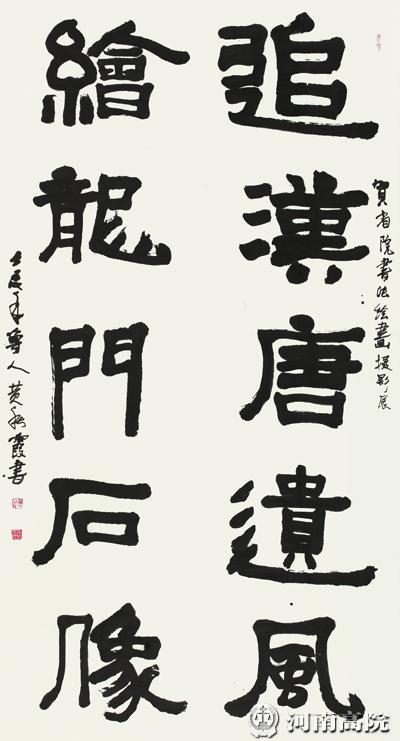 賀省院書法绘畫摄影展
追漢唐遺風
繪龍門石像
壬辰年魯人黄秋霞書
河南高院